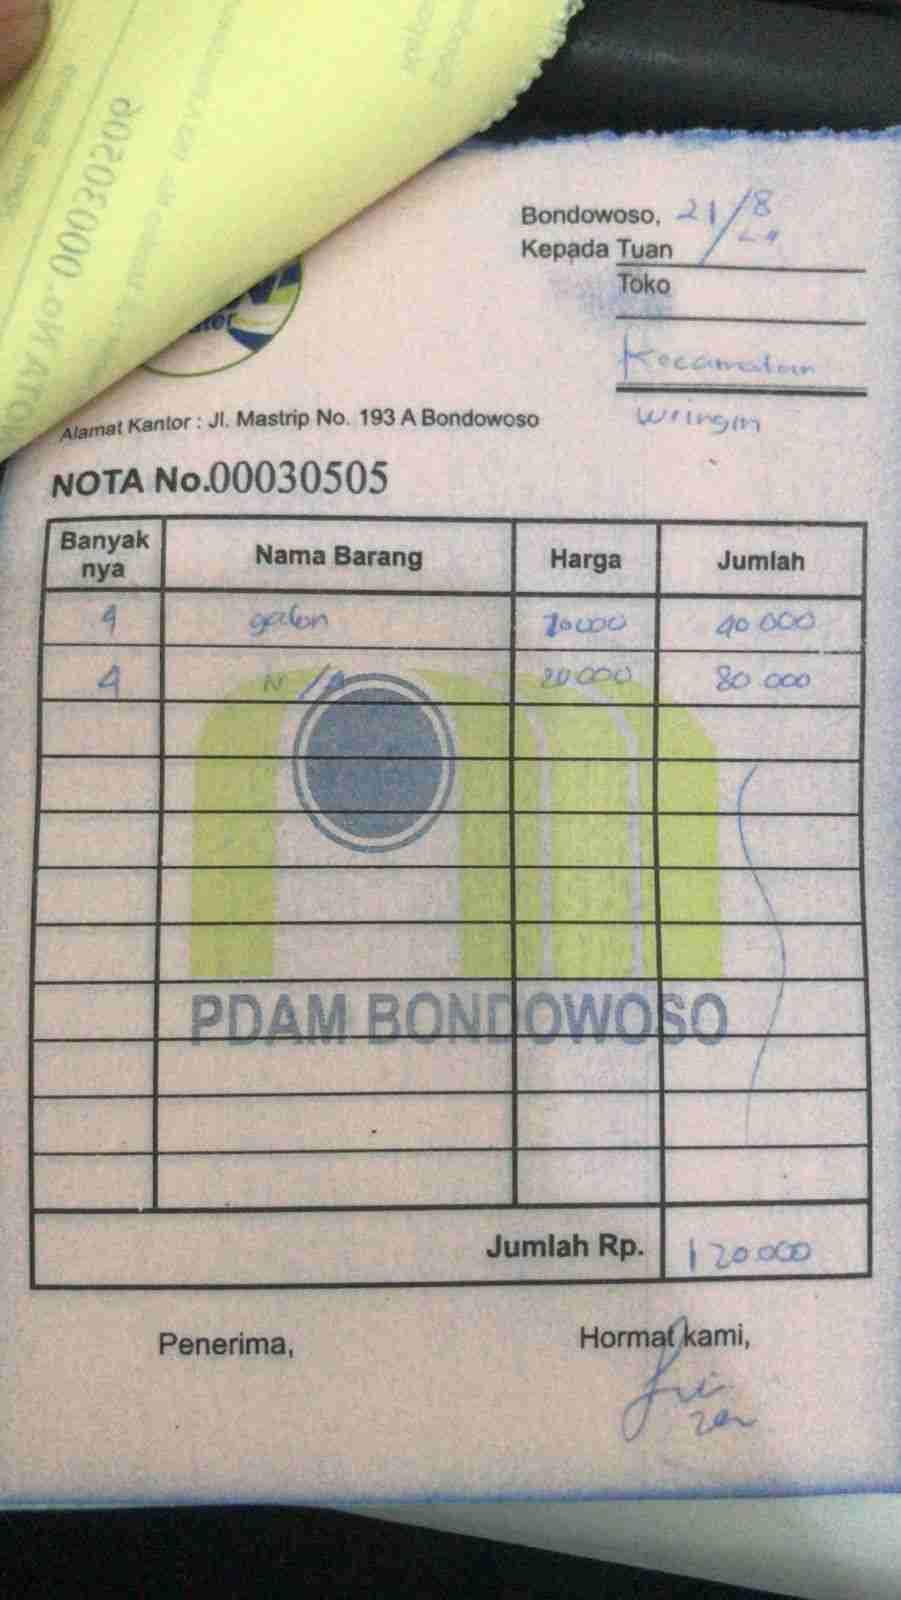 No. 00030506
Bondowoso, 21/8
Kepada Tuan
Toko
Kecamatan
Wringin
Alamat Kantor : Jl. Mastrip No. 193 A Bondowoso
NOTA No.00030505
Banyak nya Nama Barang Harga Jumlah
4 galon 10000 40 000
4 N/A 20000 80 000
PDAM BONDOWOSO
Jumlah Rp. 120.000
Penerima, Hormat kami,